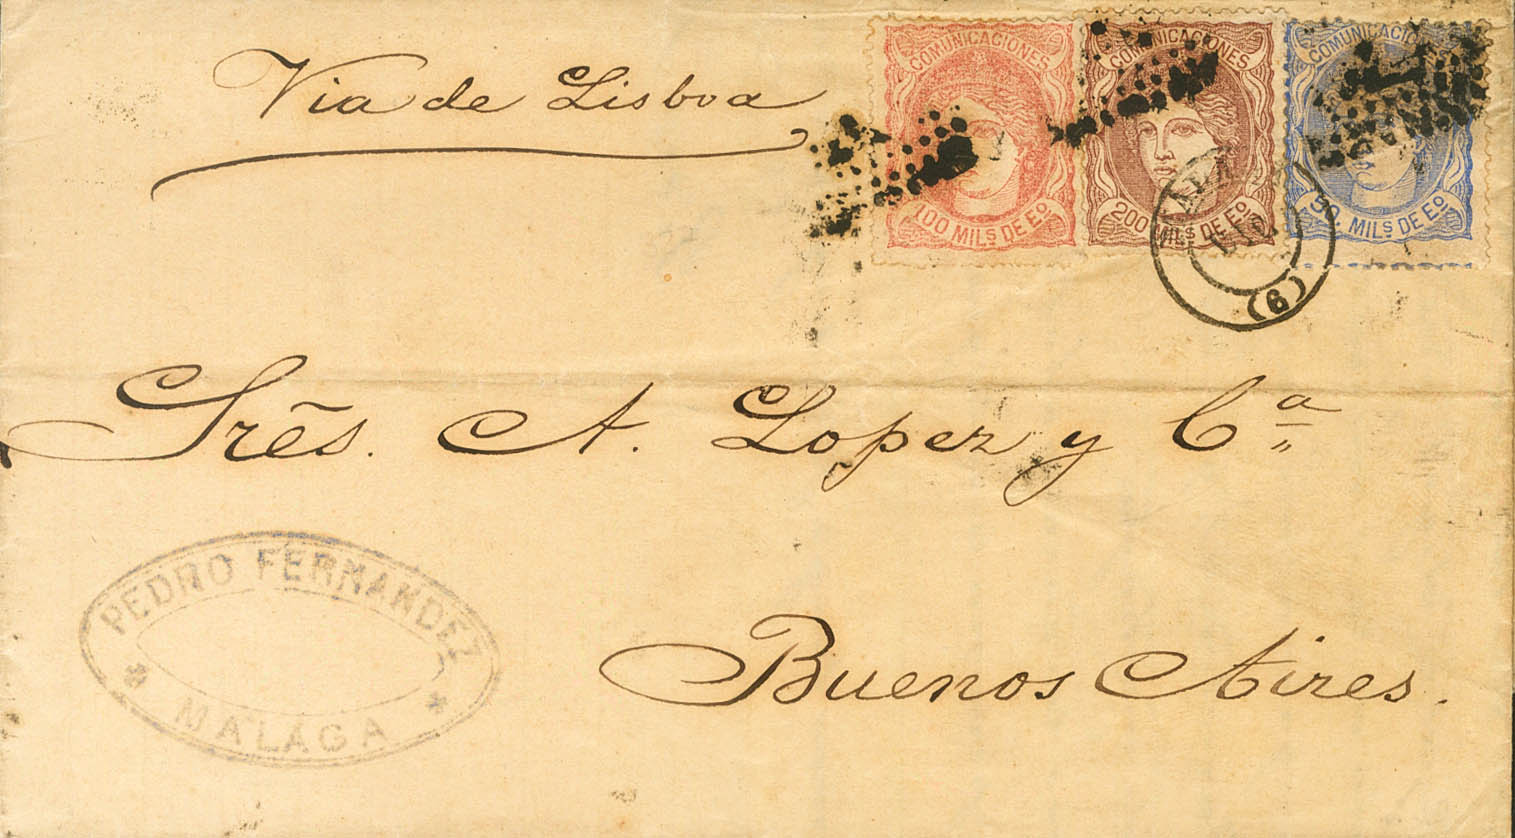 Via de Lisboa
COMUNICACIONES
100 MILS DE EO
COMUNICACIONES
200 MILS DE EO
COMUNICACION
50 MILS DE EO
(6)
Srẽs. A. Lopez y Cª
PEDRO FERNANDEZ
MALAGA
Buenos Aires.